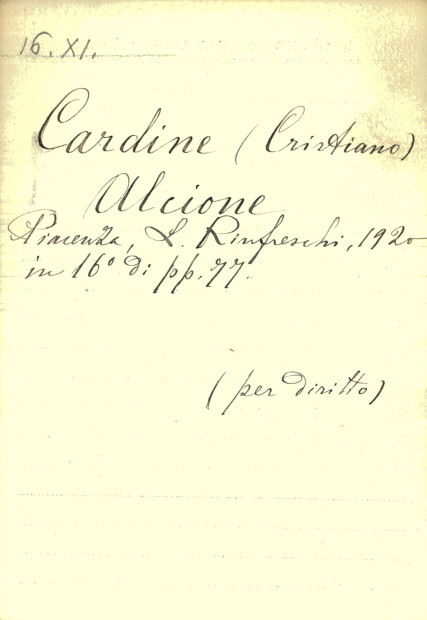 16. XI.
Cardine (Cristiano)
Alcione
Piacenza, L. Rinfreschi, 1920
in 16° di pp. 77.
(per diritto)